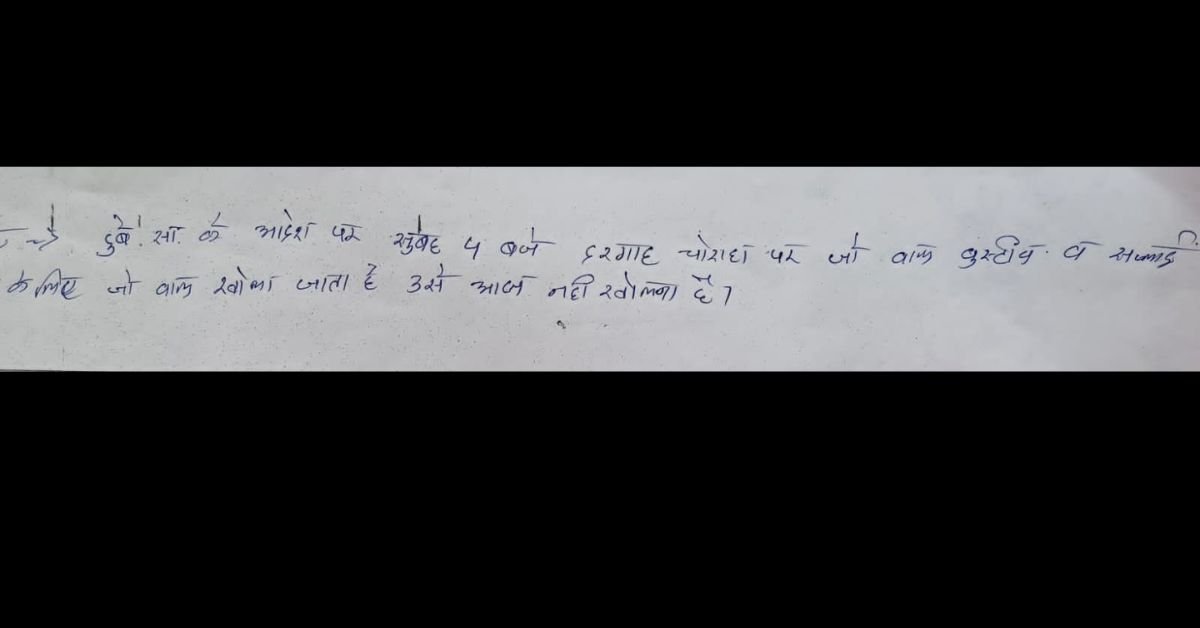 दुबे सा. के आदेश पर सुबह 4 बजे दरगाह चोराहा पर जो वाल व सप्लाई
के लिए जो वाल खोला जाता है उसे आज नही खोलना है।